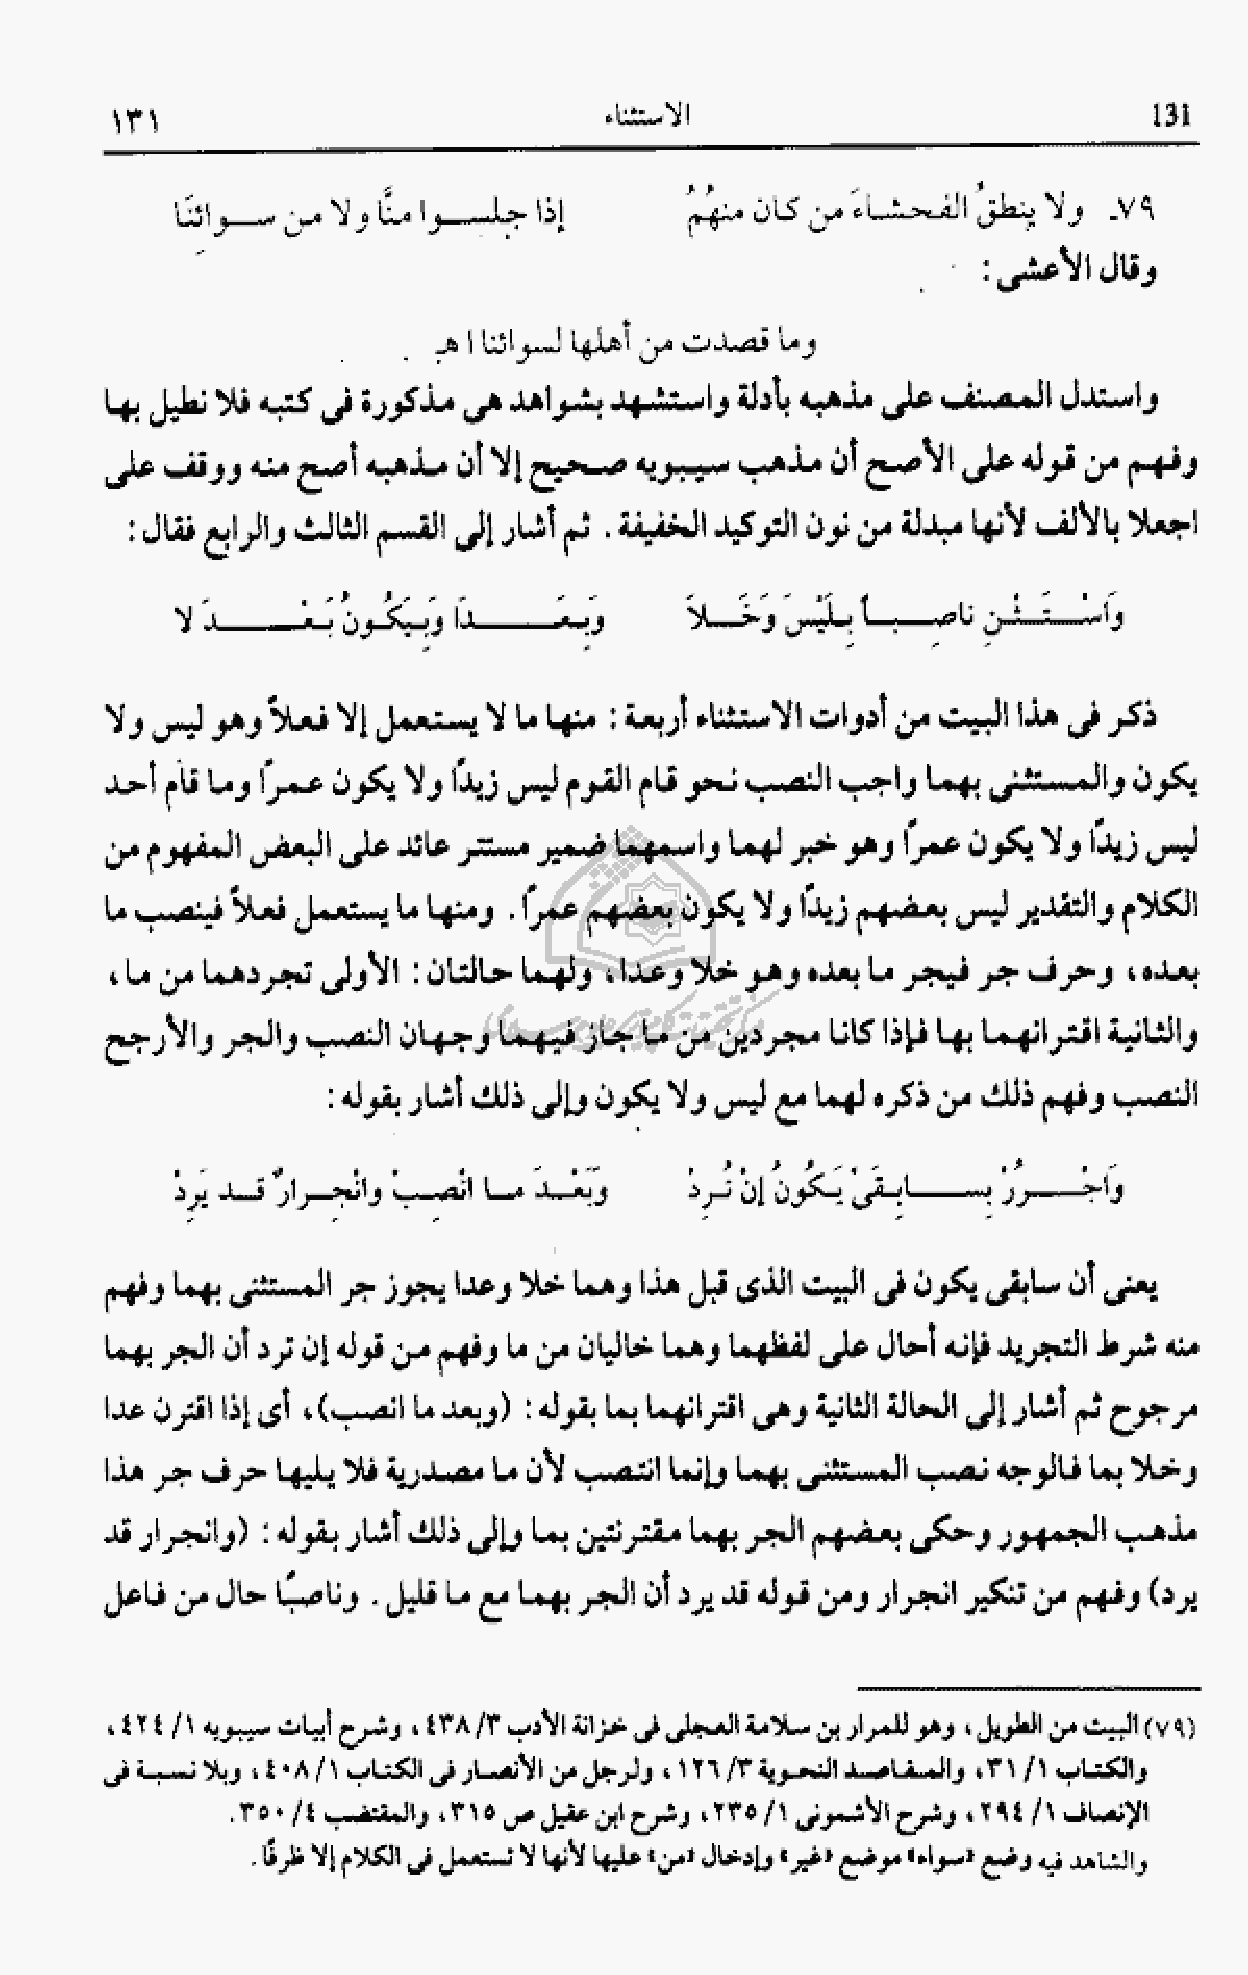 131 الاستثناء ١٣١
٧٩ـ ولا ينطقُ الفحشاءَ من كان منهُمُ إذا جلسوا منَّا ولا من سوائنَا
وقال الأعشى :
وما قصدت من أهلها لسوائنا ا هـ
واستدل المصنف على مذهبه بأدلة واستشهد بشواهد هى مذكورة فى كتبه فلا نطيل بها
وفهم من قوله على الأصح أن مذهب سيبويه صحيح إلا أن مذهبه أصح منه ووقف على
اجعلا بالألف لأنها مبدلة من نون التوكيد الخفيفة . ثم أشار إلى القسم الثالث والرابع فقال :
وَاسْتَثْنِ نَاصِبًا بِلَيْسَ وَخَلاَ وَبِعَدَا وَبِيَكُونُ بَعْدَ لا
ذكر فى هذا البيت من أدوات الاستثناء أربعة : منها ما لا يستعمل إلا فعلاً وهو ليس ولا
يكون والمستثنى بهما واجب النصب نحو قام القوم ليس زيدًا ولا يكون عمرًا وما قام أحد
ليس زيدًا ولا يكون عمرًا وهو خبر لهما واسمهما ضمير مستتر عائد على البعض المفهوم من
الكلام والتقدير ليس بعضهم زيدًا ولا يكون بعضهم عمرًا . ومنها ما يستعمل فعلاً فينصب ما
بعده ، وحرف جر فيجر ما بعده وهو خلا وعدا ، ولهما حالتان : الأولى تجردهما من ما ،
والثانية اقترانهما بها فإذا كانا مجردين من ما جاز فيهما وجهان النصب والجر والأرجح
النصب وفهم ذلك من ذكره لهما مع ليس ولا يكون وإلى ذلك أشار بقوله :
وَاجْرُرْ بِسَابِقَىْ يَكُونُ إنْ تُرِدْ وَبَعْدَ مَا انْصِبْ وانْجِرارٌ قد يَرِدْ
يعنى أن سابقى يكون فى البيت الذى قبل هذا وهما خلا وعدا يجوز جر المستثنى بهما وفهم
منه شرط التجريد فإنه أحال على لفظهما وهما خاليان من ما وفهم من قوله إن ترد أن الجر بهما
مرجوح ثم أشار إلى الحالة الثانية وهى اقترانهما بما بقوله : (وبعد ما انصب) ، أى إذا اقترن عدا
وخلا بما فالوجه نصب المستثنى بهما وإنما انتصب لأن ما مصدرية فلا يليها حرف جر هذا
مذهب الجمهور وحكى بعضهم الجر بهما مقترنتين بما وإلى ذلك أشار بقوله : (وانجرار قد
يرد) وفهم من تنكير انجرار ومن قوله قد يرد أن الجر بهما مع ما قليل . وناصبًا حال من فاعل
(٧٩) البيت من الطويل ، وهو للمرار بن سلامة العجلى فى خزانة الأدب ٣/ ٤٣٨ ، وشرح أبيات سيبويه ١/ ٤٢٤ ،
والكتاب ١/ ٣١ ، والمقاصد النحوية ٣/ ١٢٦ ، ولرجل من الأنصار فى الكتاب ١/ ٤٠٨ ، وبلا نسبة فى
الإنصاف ١/ ٢٩٤ ، وشرح الأشمونى ١/ ٢٣٥ ، وشرح ابن عقيل ص ٣١٥ ، والمقتضب ٤/ ٣٥٠ .
والشاهد فيه وضع «سواء» موضع «غير» وإدخال «من» عليها لأنها لا تستعمل فى الكلام إلا ظرفًا .